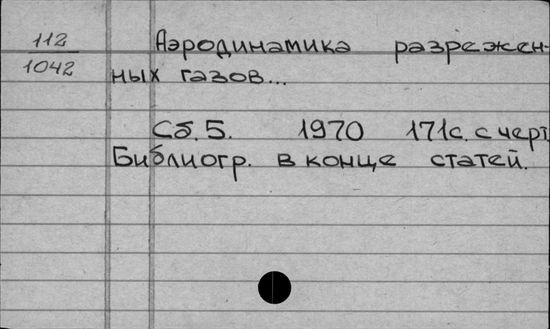 112 Аэродинамика разрежен-
1042 ных газов...
Сб. 5. 1970 171с. с черт.
Библиогр. в конце статей.